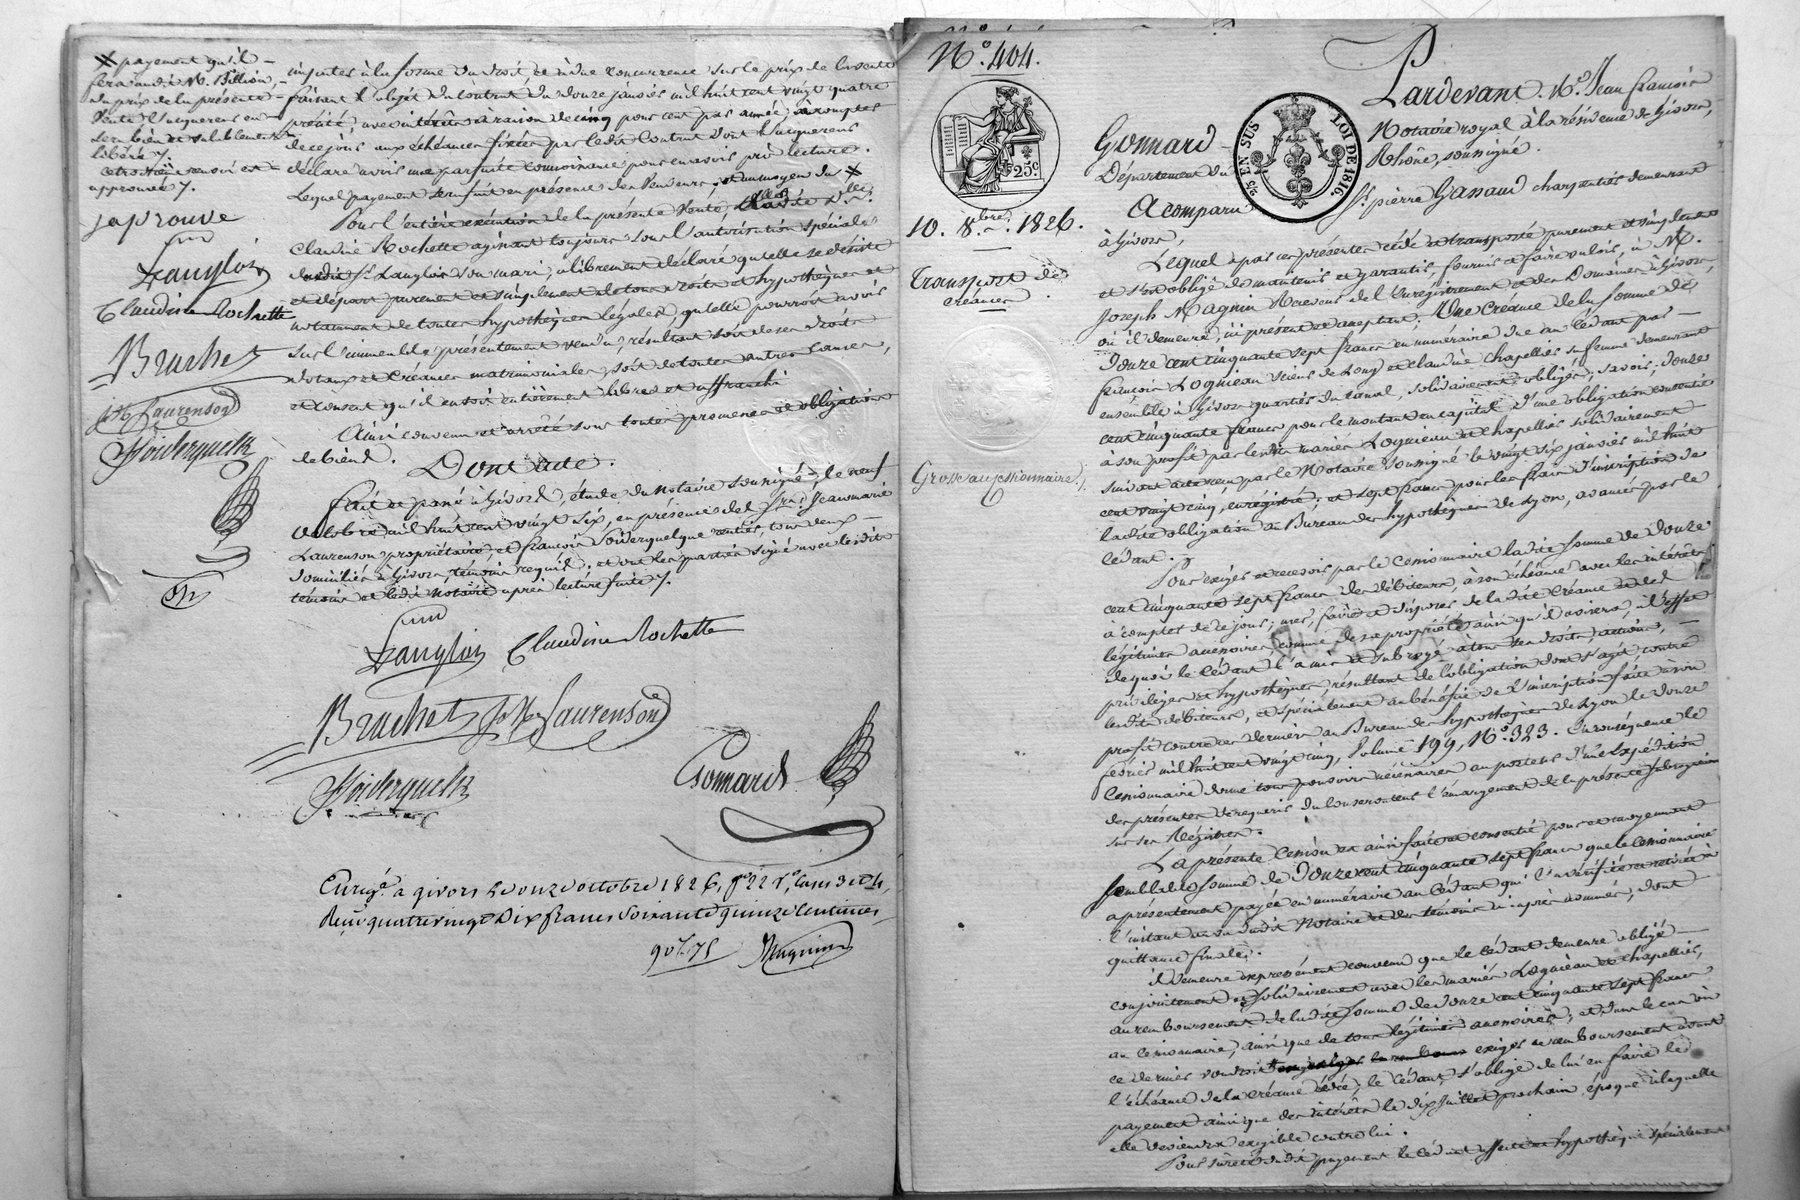 ✗ payement qu'il
fera audit M. Billion,
du prix de la présente
vente l'acquéreur en
sera bien et valablement
libéré ⁊.
Ce troisième renvoi est
approuvé ⁊.
japrouve
Langlois
Claudine Rochette
Brachet
Laurenson
Foiderquelk
injustes à la forme du droit, et à due concurrence sur le prix de la vente
faisant l'objet du contrat du douze janvier mil huit cent vingt quatre
précité, avec intérêts à raison de cinq pour cent par année, à compter
de ce jour aux échéances fixées par ledit contrat dont l'acquéreur
déclare avoir une parfaite connoissance pour en avoir pris lecture.
Lequel payement sera fait en présence des vendeurs, et au moyen du ✗
Pour l'entière exécution de la présente vente, ladite D.e
Claudine Rochette agissant toujours sous l'autorisation spéciale
dudit S.r Langlois son mari, a librement déclaré qu'elle se désiste
et départ purement et simplement de tous droits et hypothèques et
notamment de toutes hypothèques légales, qu'elle pourroit avoir
sur l'immeuble présentement vendu, résultant soit de ses droits
dotaux et créances matrimoniales, soit de toutes autres causes,
et consent qu'il en soit entièrement libéré et affranchi
Ainsi convenu et arrêté sous toutes promesses et obligations
de biens.
Dont acte.
Fait et passé à Givors, étude du notaire soussigné, le neuf
octobre mil huit cent vingt six, en présence de S.rs Jeanmarie
Laurenson propriétaire, et françois Foiderquelque rentier, tous deux
domiciliés à Givors, témoins requis; et ont les parties signé avec lesdits
témoins et ledit notaire après lecture faite ⁊.
Langlois Claudine Rochette
Brachet J M Laurenson
Foiderquelk Gonnard
Enrég.é a givors le onze octobre 1826, f.o 22 r.o Cases 3 et 4,
Reçu quatre vingt Dix francs Soixante quinze Centimes
90f.75 Magnin
N.o 404.
25c.
25c EN SUS LOI DE 1816.
10. 8.bre 1826.
Transport de
créances
Grosse au cessionnaire.
Pardevant M.e Jean françois
Gonnard Notaire royal à la résidence de Givors,
Département du Rhône, soussigné.
A comparu S.r pierre Gassaud charpentier demeurant
à Givors,
Lequel a par ces présentes cédé et transporté purement et simplement
et s'est obligé de maintenir et garantir, fournir et faire valoir, à M.
Joseph Magnin Receveur de l'Enregistrement et des Domaines à Givors,
où il demeure, ici présent et acceptant, Une Créance de la somme de
Douze cent cinquante sept francs en numéraire due au Cédant par
françois Lognieau scieur de Long et claudine Chapellier sa femme demeurant
ensemble à Givors quartier du canal, solidairement obligés; savoir; douze
cent cinquante francs pour le montant en capital d'une obligation consentie
à son profit par lesdits mariés Lognieau et Chapellier solidairement
suivant acte reçu par le Notaire soussigné le vingt six janvier mil huit
cent vingt cinq, enregistré; et sept francs pour les frais d'inscription de
ladite obligation au Bureau des hypothèques de Lyon, avancés par le
cédant.
Pour exiger et recevoir par le Cessionnaire ladite somme de Douze
cent cinquante sept francs des débiteurs, à son échéance avec les intérêts
à compter de ce jour; user, faire et disposer de ladite Créance et des
légitimes accessoires comme de sa propriété ainsi qu'il avisera, à l'effet
de quoi le Cédant l'a mis et subrogé à tous ses droits, actions,
privilèges et hypothèques, résultant de l'obligation dont s'agit contre
lesdits débiteurs, et spécialement au bénéfice de l'inscription faite à son
profit contre ces derniers au Bureau des hypothèques de Lyon le douze
février mil huit cent vingt cinq, Volume 199, N.o 323. En conséquence le
Cessionnaire donne tous pouvoirs nécessaires au porteur d'une expédition
des présentes de requérir du Conservateur l'émargement de la présente subrogation
sur ses Régistres.
La présente Cession est ainsi faite et consentie pour et moyennant
semblable somme de Douze cent cinquante sept francs que le Cessionnaire
a présentement payée en numéraire au Cédant qui l'a vérifiée et retirée à
l'instant au vu dudit Notaire et des témoins ci après nommés, dont
quittance finale.
il Demeure expressément convenu que le Cédant demeure obligé
conjointement et solidairement avec les mariés Logniean et Chapellier,
au remboursement de ladite somme de Douze cent cinquante sept francs
au cessionnaire, ainsi que de tous légitimes accessoires; et dans le cas où
ce dernier voudroit exiger ce remboursement avant
l'échéance de la créance cédée, le cédant s'oblige de lui en faire le
payement ainsi que des intérêts le dix juillet prochain, époque à laquelle
elle deviendra exigible contre lui.
Pour sûreté dudit payement le Cédant affecte et hypothèque spécialement